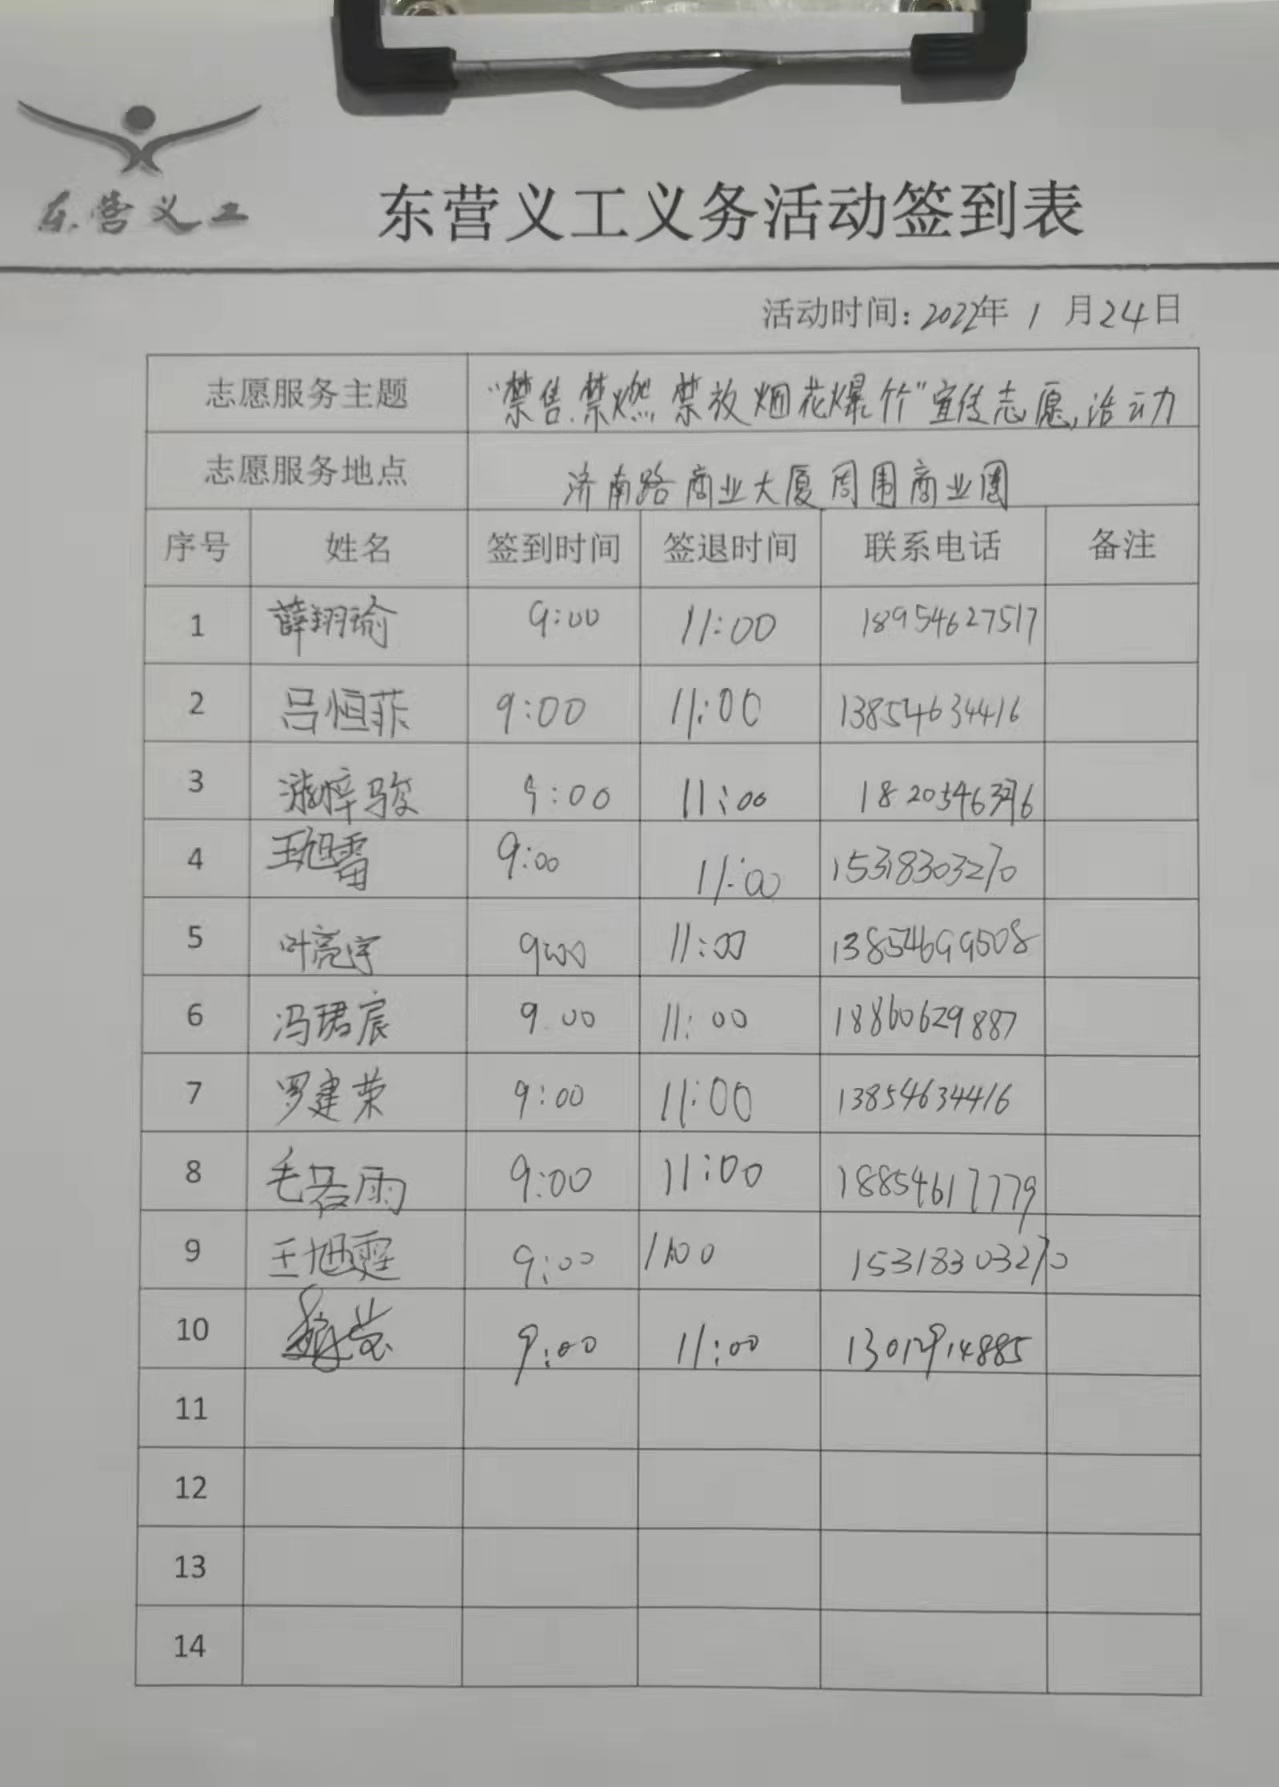 东营义工
东营义工义务活动签到表
活动时间：2022年 1 月 24 日
志愿服务主题 “禁售、禁燃、禁放烟花爆竹”宣传志愿活动
志愿服务地点 济南路商业大厦周围商业圈
序号 姓名 签到时间 签退时间 联系电话 备注
1 薛翔瑜 9:00 11:00 18954627517
2 吕恒菲 9:00 11:00 13854634416
3 梓骏 9:00 11:00
4 王旭雷 9:00 11:00 15318303270
5 叶亮宇 9:00 11:00 13854699508
6 冯珺宸 9:00 11:00 18860629887
7 罗建荣 9:00 11:00 13854634416
8 毛若雨 9:00 11:00 18854617779
9 王旭霆 9:00 11:00 15318303270
10 9:00 11:00
11
12
13
14